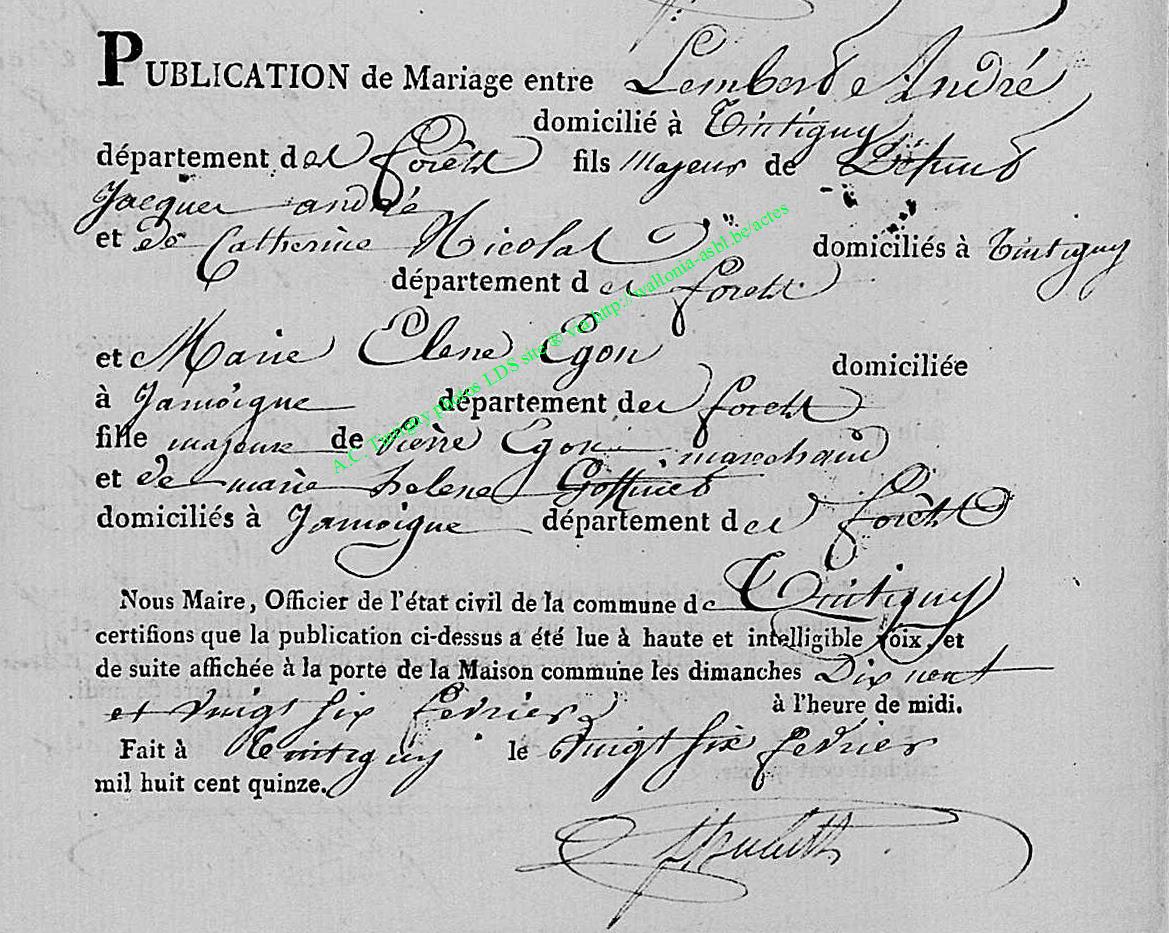 PUBLICATION de Mariage entre Lembert André
domicilié à Tintigny
département des forêts fils Majeur de Défunt
Jacques andré
et de Catherine Nicolas domiciliés à Tintigny
département des forêts
et Marie Elene Egon domiciliée
à Jamoigne département des forêts
fille majeure de Pierre Egon marechaud
et de marie helene
domiciliés à Jamoigne département des forêts
Nous Maire, Officier de l'état civil de la commune de Tintigny
certifions que la publication ci-dessus a été lue à haute et intelligible voix, et
de suite affichée à la porte de la Maison commune les dimanches Dix neuf
et vingt six fevrier à l'heure de midi.
Fait à Tintigny le vingt six fevrier
mil huit cent quinze.
A.C. Tintigny photos LDS site @ via http://wallonia-asbl.be/actes